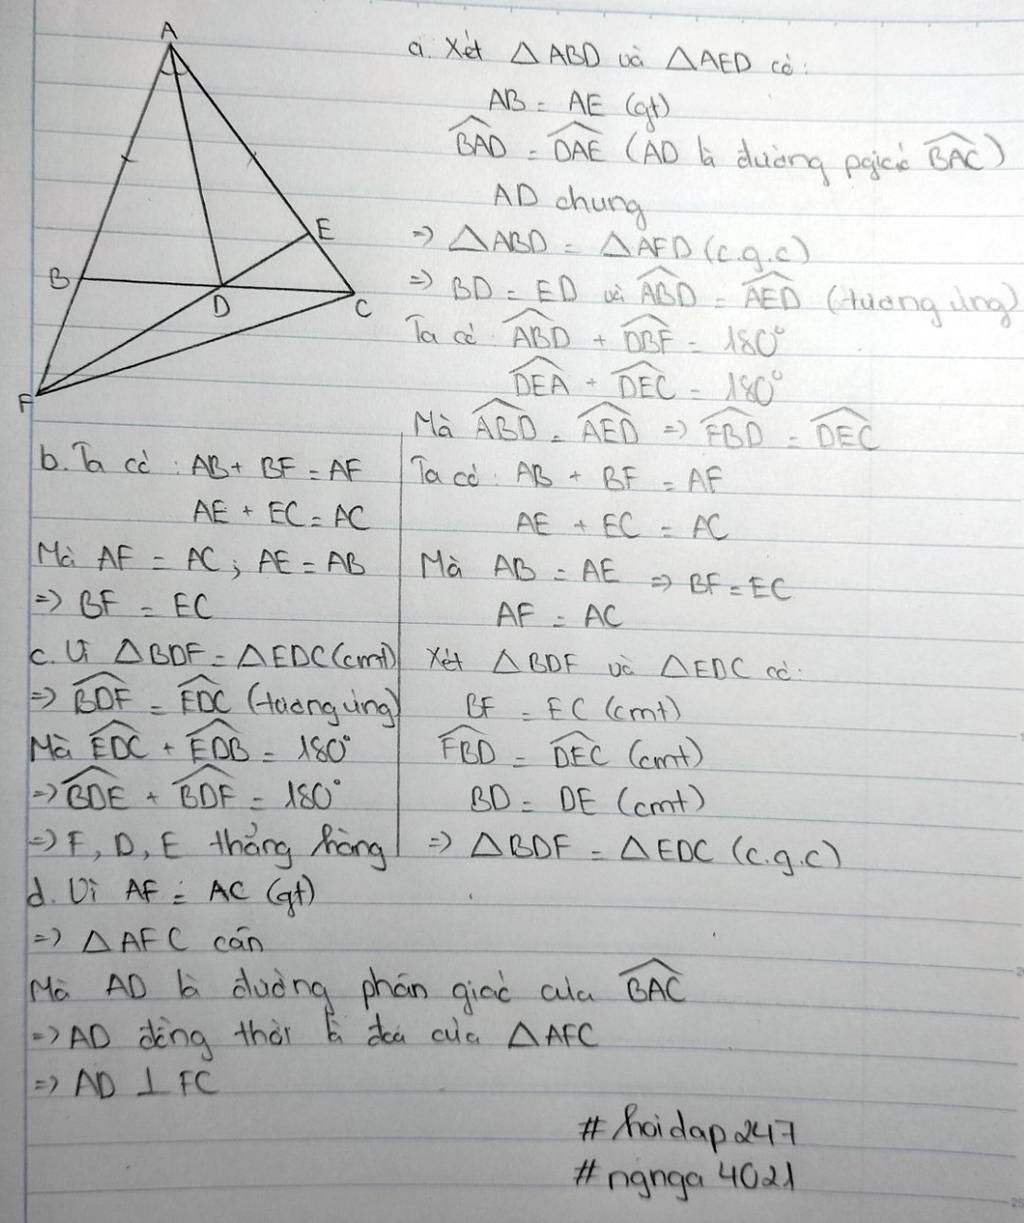 A
B
D
E
C
F
a. Xét △ABD và △AED có:
AB = AE (gt)
BAD = DAE (AD là đường pgiác BAC)
AD chung
=> △ABD = △AED (c.g.c)
=> BD = ED và ABD = AED (tương ứng)
Ta có: ABD + DBF = 180°
DEA + DEC = 180°
Mà ABD = AED => FBD = DEC
b. Ta có: AB + BF = AF
AE + EC = AC
Mà AF = AC; AE = AB
=> BF = EC
Ta có: AB + BF = AF
AE + EC = AC
Mà AB = AE => BF = EC
AF = AC
Xét △BDF và △EDC có:
BF = EC (cmt)
FBD = DEC (cmt)
BD = DE (cmt)
=> △BDF = △EDC (c.g.c)
c. Vì △BDF = △EDC (cmt)
=> BDF = EDC (tương ứng)
Mà EDC + EDB = 180°
=> BDE + BDF = 180°
=> F, D, E thẳng hàng
d. Vì AF = AC (gt)
=> △AFC cân
Mà AD là đường phân giác của BAC
=> AD đồng thời là đcao của △AFC
=> AD ⊥ FC
#hoidap247
#ngnga4021